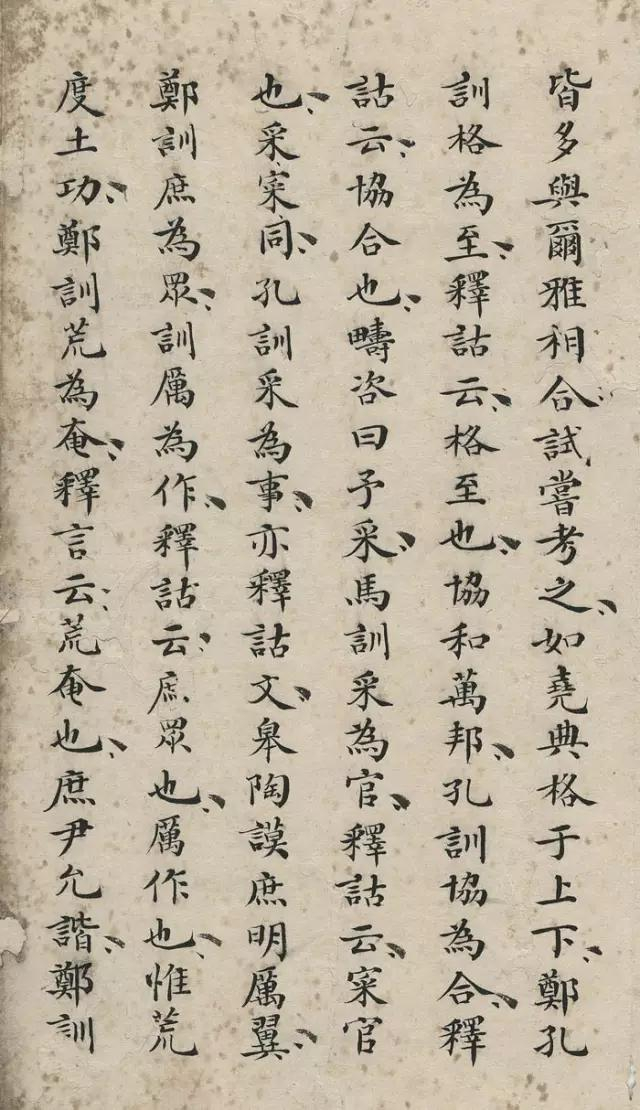 皆多與爾雅相合試嘗考之、如堯典格于上下、鄭孔
訓格為至、釋詁云、格至也、協和萬邦、孔訓協為合、釋
詁云、協合也、疇咨曰予采、馬訓采為官、釋詁云、寀官
也、采寀同、孔訓采為事、亦釋詁文、皋陶謨庶明厲翼、
鄭訓庶為眾、訓厲為作、釋詁云、庶眾也、厲作也、惟荒
度土功、鄭訓荒為奄、釋言云、荒奄也、庶尹允諧、鄭訓